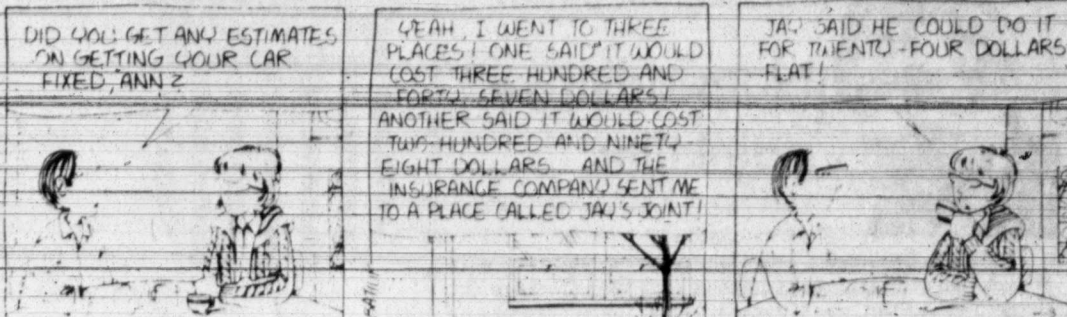 DID YOU GET ANY ESTIMATES
ON GETTING YOUR CAR
FIXED, ANN?
YEAH, I WENT TO THREE
PLACES! ONE SAID IT WOULD
COST THREE HUNDRED AND
FORTY SEVEN DOLLARS!
ANOTHER SAID IT WOULD COST
TWO-HUNDRED AND NINETY-
EIGHT DOLLARS... AND THE
INSURANCE COMPANY SENT ME
TO A PLACE CALLED JAY'S JOINT!
JAY SAID HE COULD DO IT
FOR TWENTY-FOUR DOLLARS
FLAT!